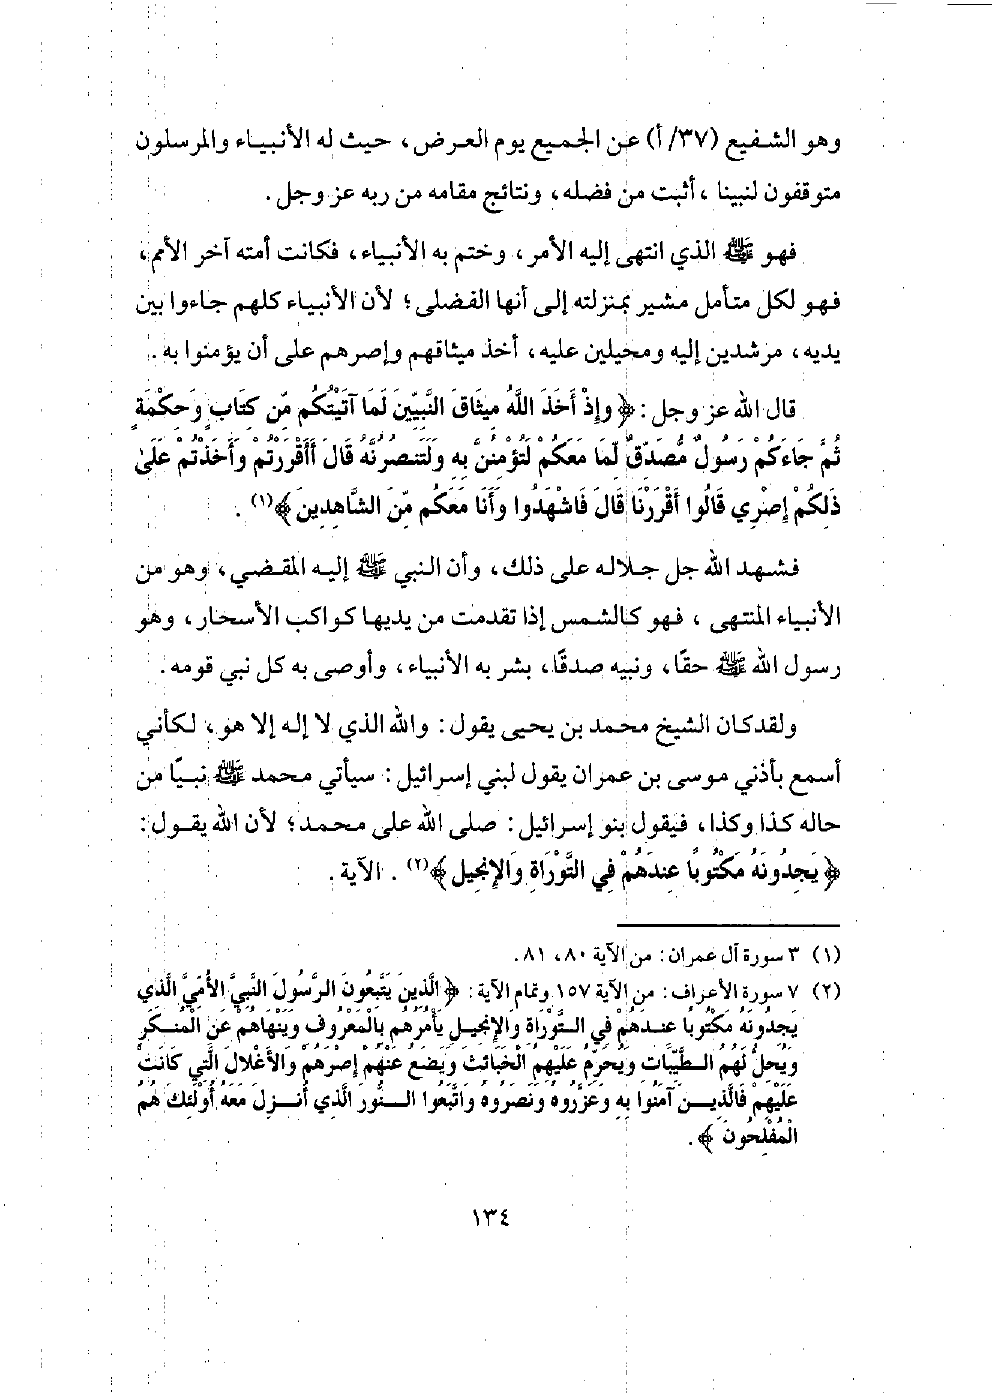 وهو الشفيع (٣٧/أ) عن الجميع يوم العرض، حيث له الأنبياء والمرسلون
متوقفون لنبينا، أثبت من فضله، ونتائج مقامه من ربه عز وجل.
فهو ﷺ الذي انتهى إليه الأمر، وختم به الأنبياء، فكانت أمته آخر الأمم،
فهو لكل متأمل مشير بمنزلته إلى أنها الفضلى؛ لأن الأنبياء كلهم جاءوا بين
يديه، مرشدين إليه ومحيلين عليه، أخذ ميثاقهم وإصرهم على أن يؤمنوا به.
قال الله عز وجل: ﴿ وَإِذْ أَخَذَ اللَّهُ مِيثَاقَ النَّبِيِّينَ لَمَا آتَيْتُكُم مِّن كِتَابٍ وَحِكْمَةٍ
ثُمَّ جَاءَكُمْ رَسُولٌ مُّصَدِّقٌ لِّمَا مَعَكُمْ لَتُؤْمِنُنَّ بِهِ وَلَتَنصُرُنَّهُ قَالَ أَأَقْرَرْتُمْ وَأَخَذْتُمْ عَلَىٰ
ذَلِكُمْ إِصْرِي قَالُوا أَقْرَرْنَا قَالَ فَاشْهَدُوا وَأَنَا مَعَكُم مِّنَ الشَّاهِدِينَ ﴾(١) .
فشهد الله جل جلاله على ذلك، وأن النبي ﷺ إليه المقضي، وهو من
الأنبياء المنتهى ، فهو كالشمس إذا تقدمت من يديها كواكب الأسحار، وهو
رسول الله ﷺ حقًا، ونبيه صدقًا، بشر به الأنبياء، وأوصى به كل نبي قومه.
ولقد كان الشيخ محمد بن يحيى يقول: والله الذي لا إله إلا هو، لكأني
أسمع بأذني موسى بن عمران يقول لبني إسرائيل: سيأتي محمد ﷺ نبيًّا من
حاله كذا وكذا، فيقول بنو إسرائيل: صلى الله على محمد؛ لأن الله يقول:
﴿ يَجِدُونَهُ مَكْتُوبًا عِندَهُمْ فِي التَّوْرَاةِ وَالإِنجِيلِ ﴾(٢) . الآية .
(١) ٣ سورة آل عمران: من الآية ٨٠، ٨١.
(٢) ٧ سورة الأعراف: من الآية ١٥٧ وتمام الآية: ﴿ الَّذِينَ يَتَّبِعُونَ الرَّسُولَ النَّبِيَّ الأُمِّيَّ الَّذِي
يَجِدُونَهُ مَكْتُوبًا عِندَهُمْ فِي التَّوْرَاةِ وَالإِنجِيلِ يَأْمُرُهُم بِالْمَعْرُوفِ وَيَنْهَاهُمْ عَنِ الْمُنكَرِ
وَيُحِلُّ لَهُمُ الطَّيِّبَاتِ وَيُحَرِّمُ عَلَيْهِمُ الْخَبَائِثَ وَيَضَعُ عَنْهُمْ إِصْرَهُمْ وَالأَغْلالَ الَّتِي كَانَتْ
عَلَيْهِمْ فَالَّذِينَ آمَنُوا بِهِ وَعَزَّرُوهُ وَنَصَرُوهُ وَاتَّبَعُوا النُّورَ الَّذِي أُنزِلَ مَعَهُ أُولَئِكَ هُمُ
الْمُفْلِحُونَ ﴾.
١٣٤